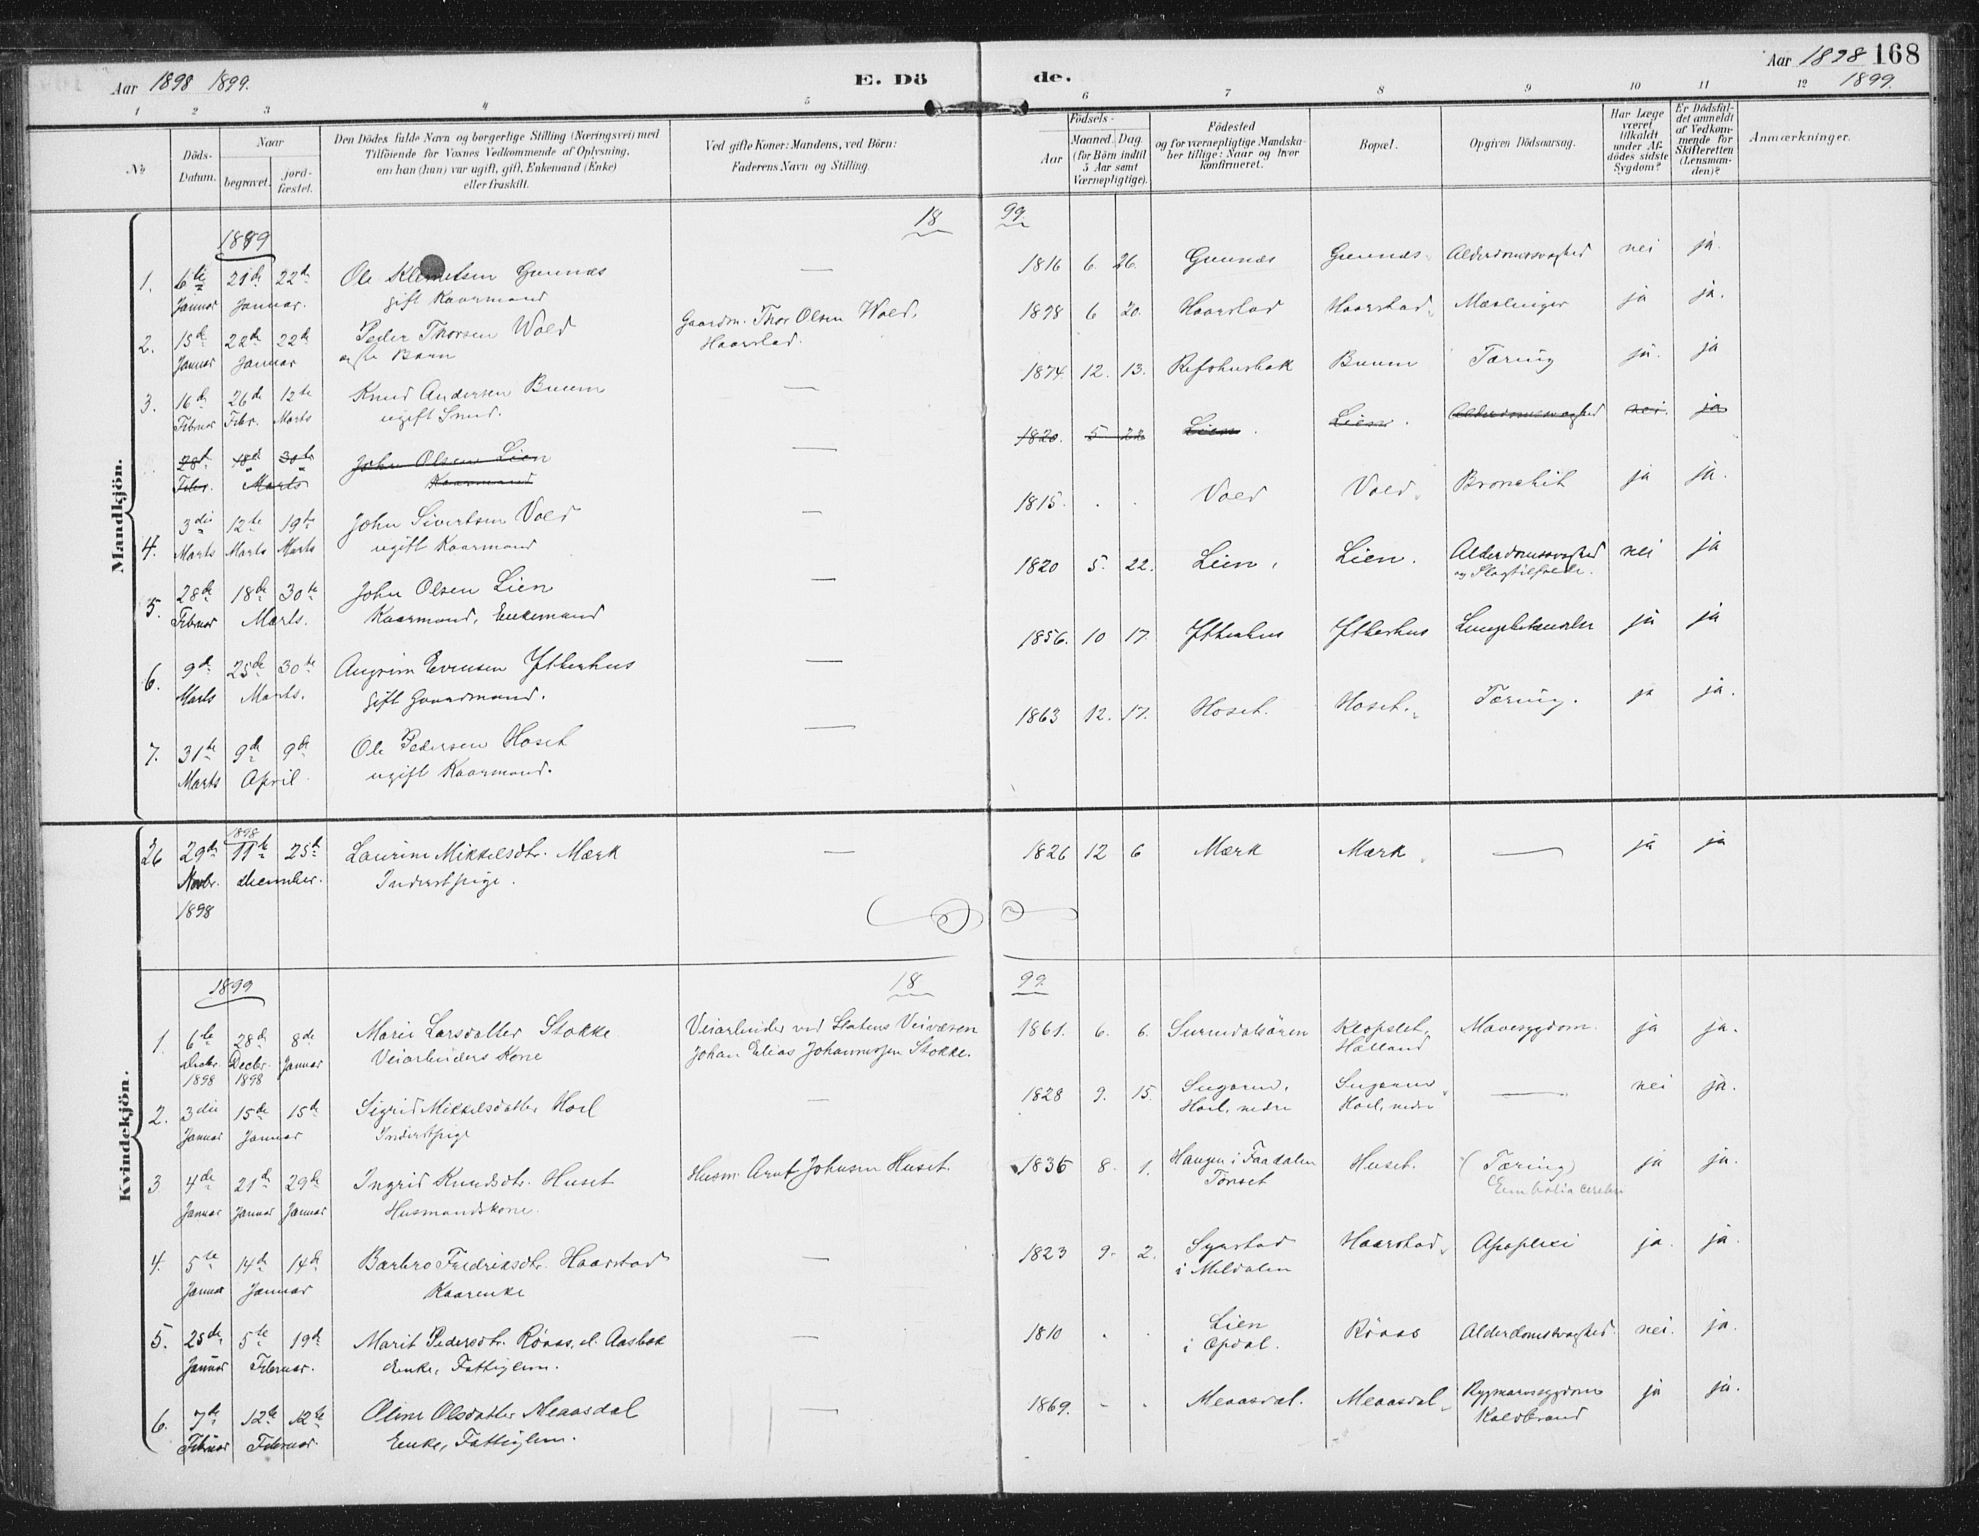 Aar 1898 1899.
E. Dö
de.
Aar 1898 168
1899.
1 2 3 4 5 6 7 8 9 10 11 12
No
Döds-Datum.
Naar
begravet.
jordfæstet.
Den Dödes fulde Navn og borgerlige Stilling (Næringsvei) med
Tilföiende for Voxnes Vedkommende af Oplysning,
om han (hun) var ugift, gift, Enkemand (Enke)
eller fraskilt.
Ved gifte Koner: Mandens, ved Börn:
Faderens Navn og Stilling.
Födsels-
Aar
Maaned. Dag.
(for Börn indtil
5 Aar samt
Værnepligtige).
Födested
og for værnepligtige Mandska-
ber tillige: Naar og hvor
konfirmeret.
Bopæl.
Opgiven Dödsaarsag.
Har Læge
været
tilkaldt
under Af-
dödes sidste
Sygdom?
Er Dödsfal-
det anmeldt
af Vedkom-
mende for
Skifteretten
(Lensman-
den)?
Anmærkninger.
Mandkjön.
1899
18 99.
1. 6te 21de 22de Ole Klemetsen Gunnes — 1816 6. 26. Gunnes Gunnes Alderdomssvaghed nei ja.
Januar Januar. gift Kaarmand
2. 15de 22de 22de Peder Thorsen Vold Gaardm. Thor Olsen Vold, 1898 6 20. Haarstad Haarstad Mæslinger ja ja.
Januar Januar Barn Haarstad.
3. 16de 26de 12te Knud Andersen Buum — 1874. 12. 13. Refshusbak Buum Tæring ja. ja
Februar Febr. Marts ugift Smed.
28de 18de 30te John Olsen Lien — 1820. 5 22 Lien. Lien. Alderdomssvaghed nei. ja
Febr. Marts Kaarmand
4. 3die 12te 19de John Sivertsen Vold — 1815. . . Vold Vold Bronchit ja ja.
Marts Marts Marts ugift Kaarmand
5. 28de 18de 30te John Olsen Lien — 1820 5. 22. Lien. Lien. Alderdomssvaghed nei ja
Februar Marts. Kaarmand, Enkemand og Slagtilfælde.
6. 9de 25de 30te Angrim Evensen Ytterhus — 1856. 10 17. Ytterhus Ytterhus Lungebetændelse ja ja
Marts Marts. gift Gaardmand.
7. 31te 9de 9de Ole Pedersen Hoset — 1863 12. 17. Hoset. Hoset. Tæring. ja ja.
Marts April. ugift Kaarmand.
Kvindekjön.
1898
26 29de 11te 25de Laurine Mikkelsdtr. Mærk — 1826 12 6 Mærk Mærk — ja ja
Novbr. december. Inderstpige.
1898
1899
18 99.
1. 6te 28de 8de Marie Larsdatter Stokke Veiarbeider ved Statens Veivæsen 1861. 6. 6. Surendalsören Klopslet, Mavesygdom. ja ja.
Decbr. Decbr. Januar Veiarbeiders Kone Johan Elias Johannesen Stokke. Halland
1898 1898
2. 3die 15de 15de Sigrid Mikkelsdatter Hoel — 1828 9. 15. Sugaren, Sugaren — nei ja.
Januar Januar Inderstpige Hoel, nedre Hoel, nedre
3 4de 21de 29de Ingrid Knudsdtr. Huset Husm. Arnt Johnsen Huset. 1836 8. 1. Haugen i Faadalen Huset. (Tæring) ja ja.
Januar Januar Januar Husmandskone. Tönset Embolia cerebri
4. 5te 14de 14de Barbro Fredriksdtr. Haarstad — 1823 9. 2. Syrstad Haarstad Apoplexi ja. ja.
Januar Januar Kaarenke i Meldalen
5. 25de 5te 19de Marit Pedersdtr. Röaas, el. Aasbak — 1810 . . Lien Röaas Alderdomssvaghed. nei. ja.
Januar Februar. Enke, Fattiglem. i Opdal.
6. 7de 12te 12te Oline Olsdatter Meaasdal — 1869. - . Meaasdal. Meaasdal Rygmarvssygdom ja ja.
Februar Februar. Enke, Fattiglem. Koldbrand